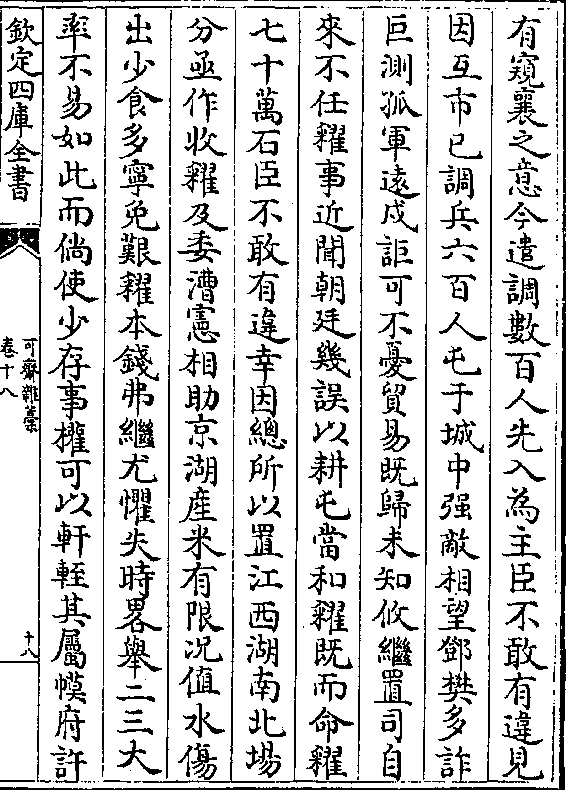 有窺襄之意今遣調數百人先入為主臣不敢有違見
因互市已調兵六百人屯于城中强敵相望鄧樊多詐
叵測孤軍遠戍詎可不憂貿易既歸未知攸繼置司自
來不任糴事近聞朝廷幾誤以耕屯當和糴既而命糴
七十萬石臣不敢有違幸因總所以置江西湖南北場
分亟作收糴及委漕憲相助京湖産米有限况值水傷
出少食多寧免艱糴本錢弗繼尤懼失時畧舉二三大
率不易如此而倘使少存事權可以軒輊其屬幙府許
欽定四庫全書
可齋雜藁
卷十八
十八